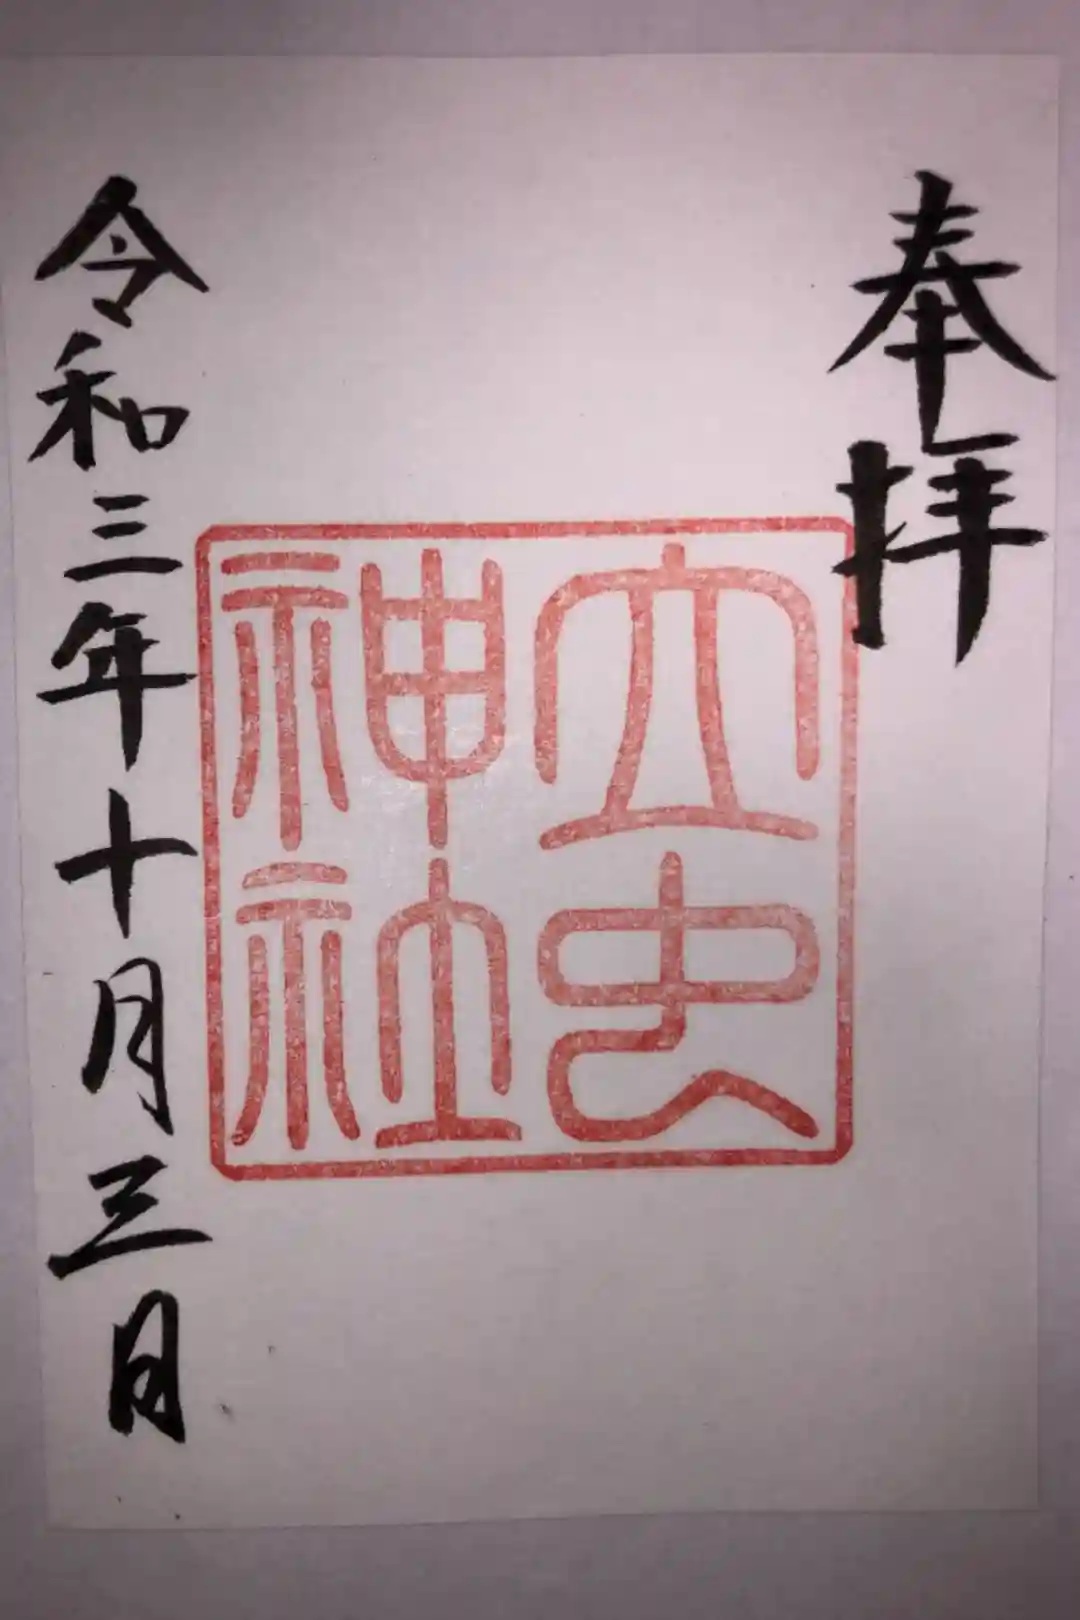 奉拝
神社
令和三年十月三日